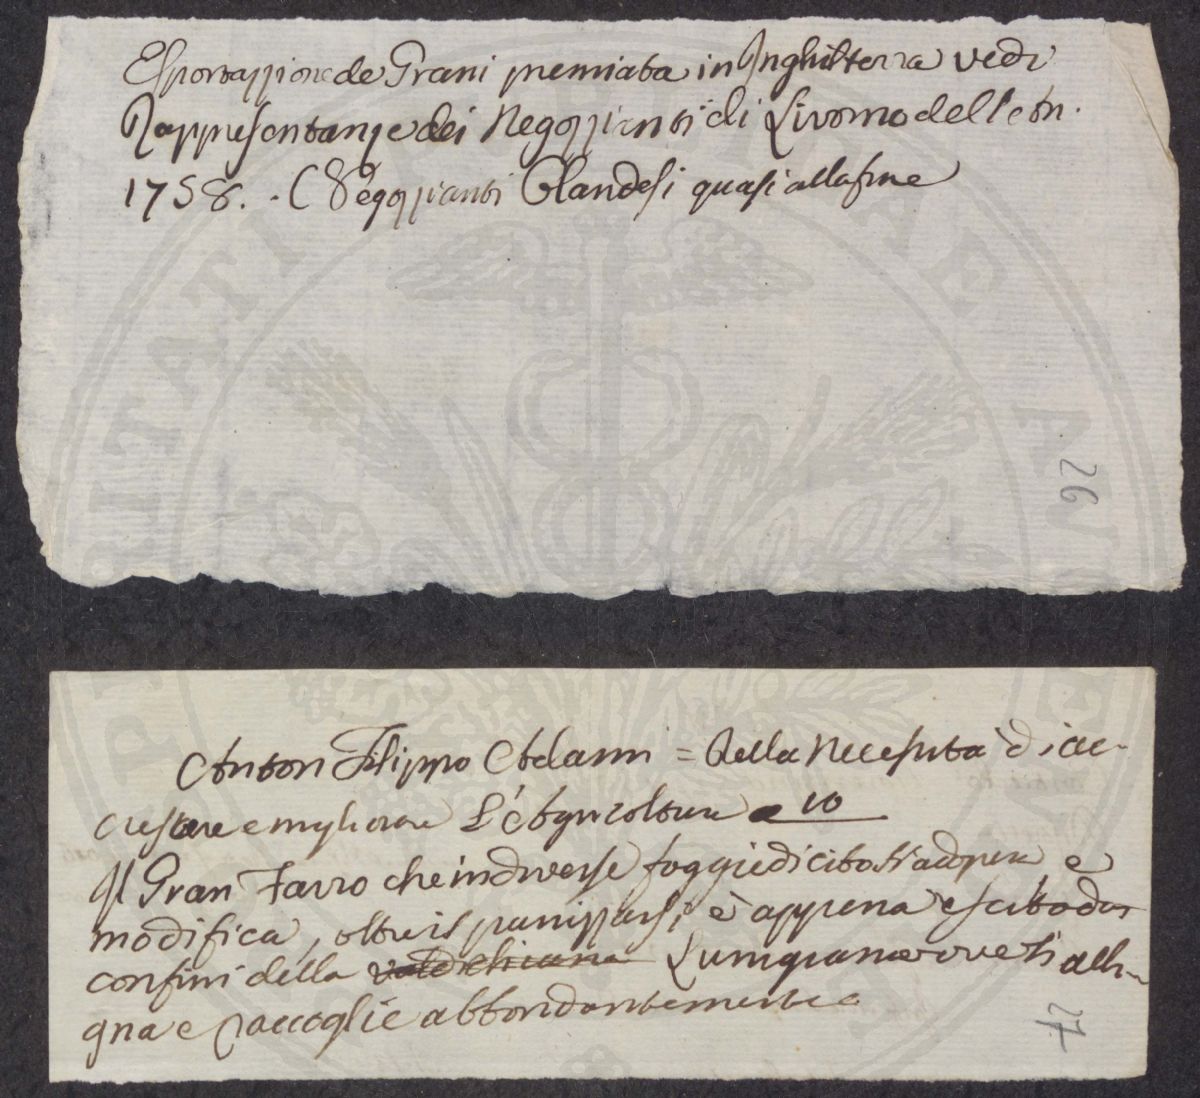 Esportazzione de Grani premiata in Inghilterra vedi
Rappresentanze dei Negozzianti di Livorno dell'
1758. Negozzianti Olandesi quasi alla fine
26
Anton Filippo Adami = Della Necessità di ac-
crescere e migliorare L'Agricoltura 10
Il Gran Farro che in diverse foggie di cibo si adopera e
modifica, oltre il panizzarsi, è appena escito da
confini della Val di Chiana Lunigiana ove si alli-
gna e raccoglie abbondantemente
27
PERITATI PUBLICAE AUGENDAE